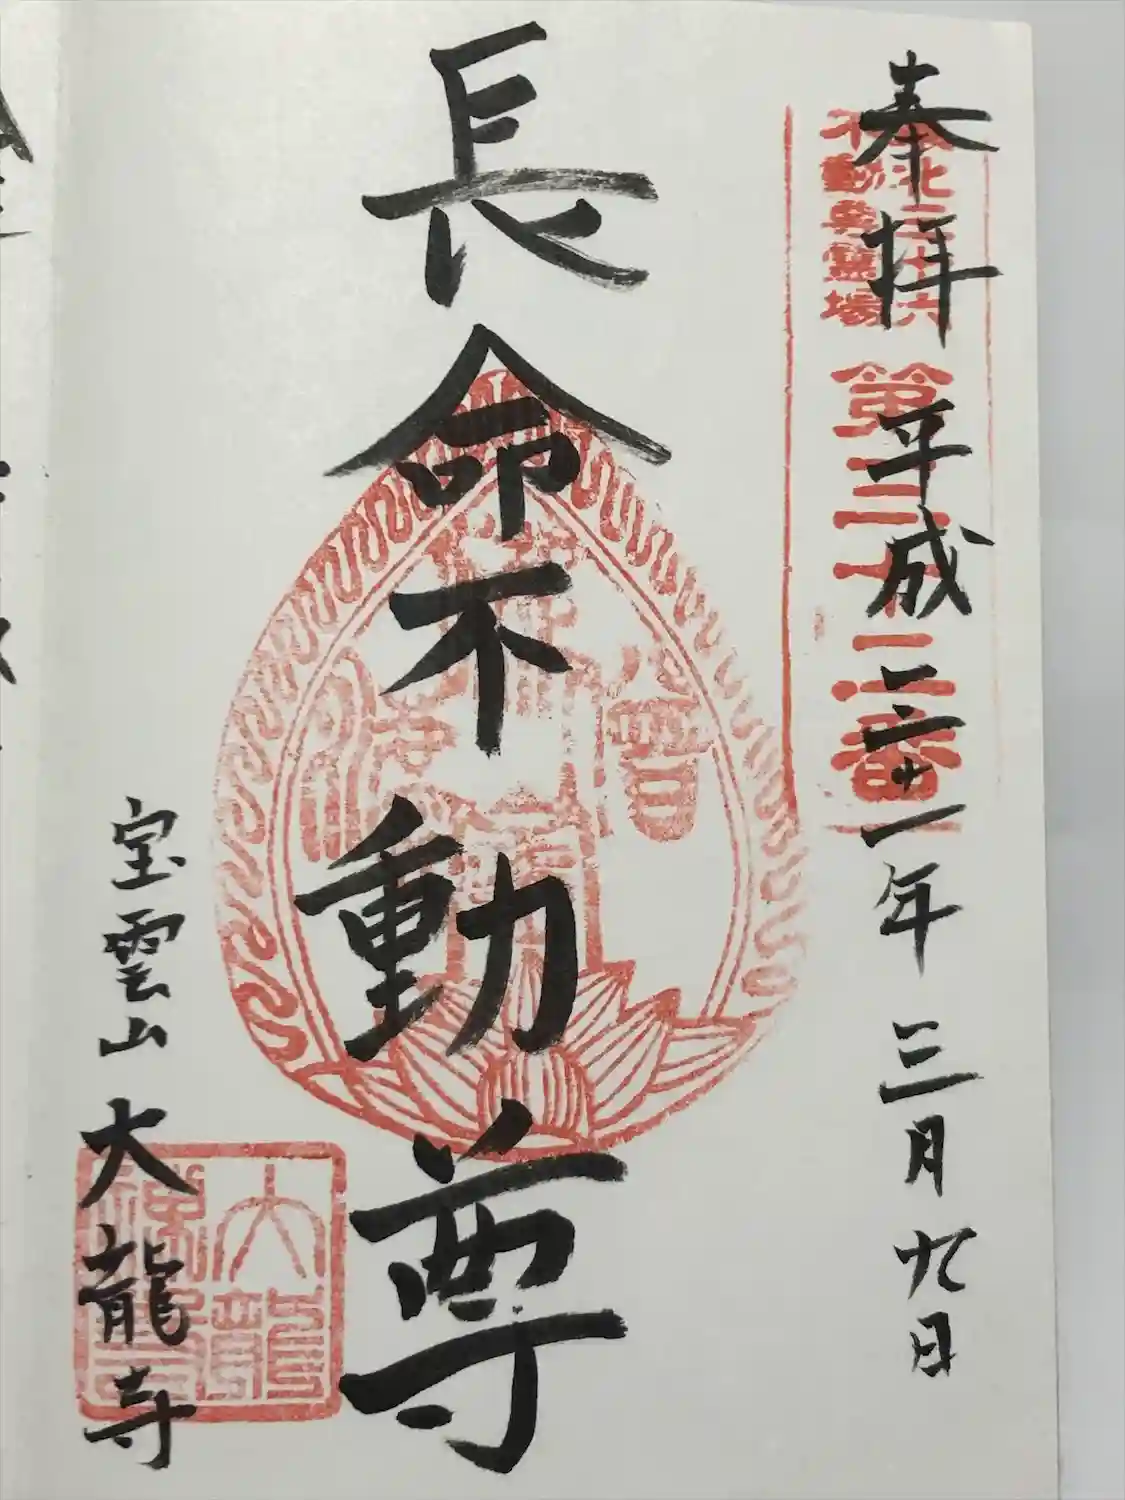 奉拝 平成三十一年三月九日
東北三十六
不動尊靈場
第三十二番
長命不動尊
宝雲山 大龍寺
大龍
禪寺